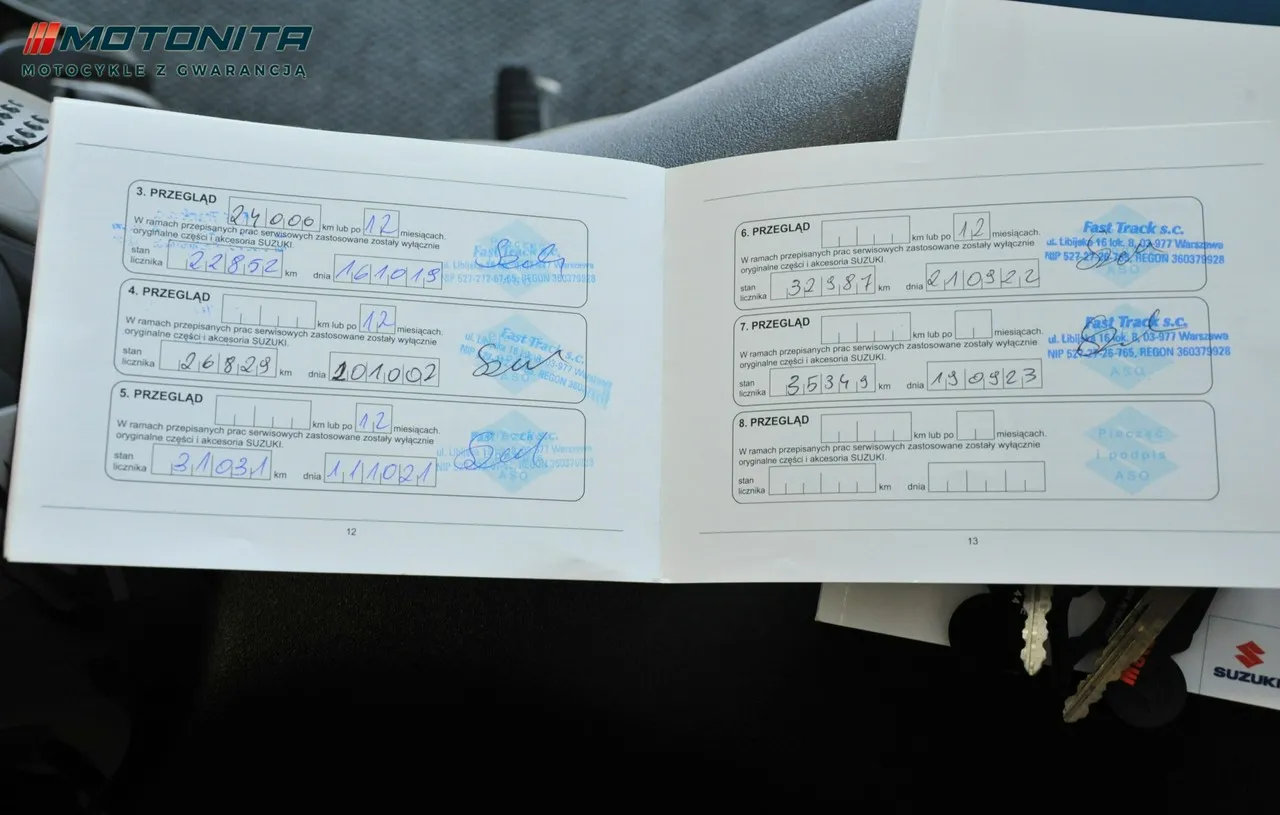 MOTONITA
MOTOCYKLE Z GWARANCJĄ
3. PRZEGLĄD 24000 km lub po 12 miesiącach.
W ramach przepisanych prac serwisowych zastosowane zostały wyłącznie
oryginalne części i akcesoria SUZUKI.
stan
licznika 22852 km dnia 161019
Fast Track s.c.
NIP 527-272-6765, REGON 360379928
4. PRZEGLĄD km lub po 12 miesiącach.
W ramach przepisanych prac serwisowych zastosowane zostały wyłącznie
oryginalne części i akcesoria SUZUKI.
stan
licznika 26829 km dnia 201002
Fast Track s.c.
ASO
5. PRZEGLĄD km lub po 12 miesiącach.
W ramach przepisanych prac serwisowych zastosowane zostały wyłącznie
oryginalne części i akcesoria SUZUKI.
stan
licznika 31031 km dnia 111021
ASO
12
6. PRZEGLĄD km lub po 12 miesiącach.
W ramach przepisanych prac serwisowych zastosowane zostały wyłącznie
oryginalne części i akcesoria SUZUKI.
stan
licznika 32987 km dnia 210922
Fast Track s.c.
ul. Libijska 16 lok. 8, 03-977 Warszawa
NIP 527-27-26-765, REGON 360379928
ASO
7. PRZEGLĄD km lub po miesiącach.
W ramach przepisanych prac serwisowych zastosowane zostały wyłącznie
oryginalne części i akcesoria SUZUKI.
stan
licznika 35349 km dnia 190923
Fast Track s.c.
ul. Libijska 16 lok. 8, 03-977 Warszawa
NIP 527-27-26-765, REGON 360379928
ASO
8. PRZEGLĄD km lub po miesiącach.
W ramach przepisanych prac serwisowych zastosowane zostały wyłącznie
oryginalne części i akcesoria SUZUKI.
stan
licznika km dnia
Pieczęć
i podpis
ASO
13
SUZUKI